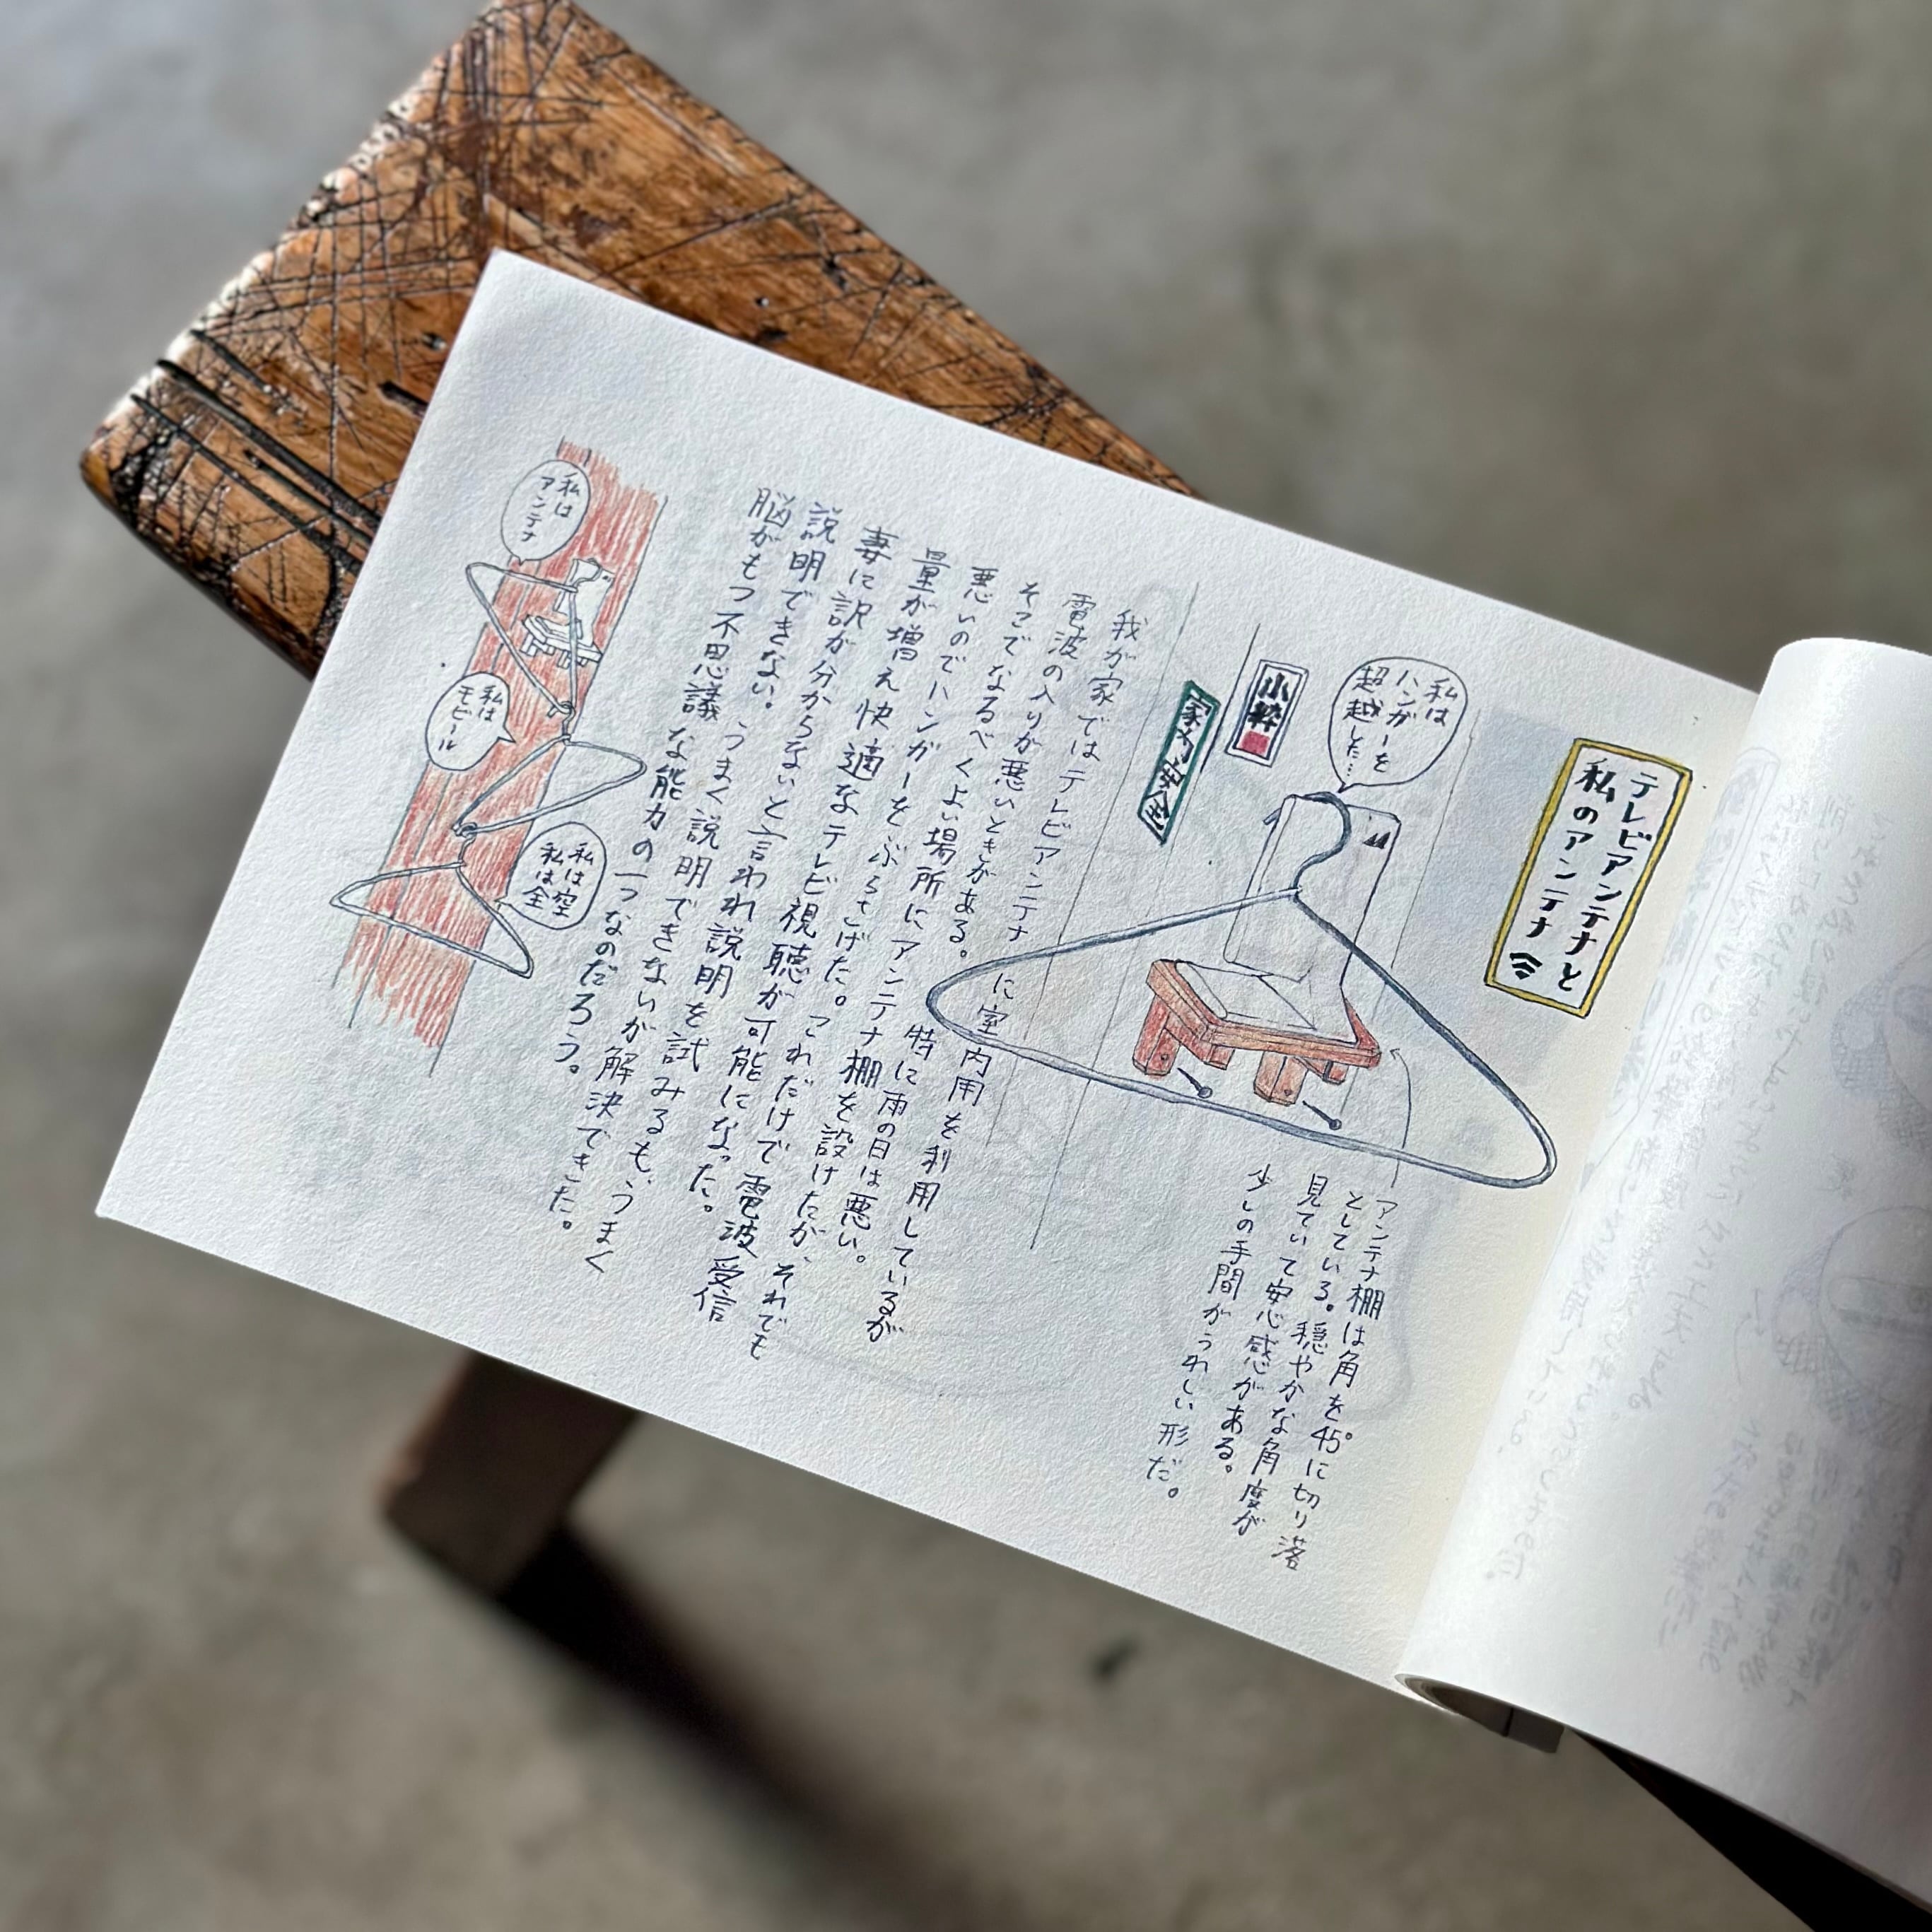 テレビアンテナと
私のアンテナ
私は
ハンガーを
超越した…
小粋
家内安全
アンテナ棚は角を45°に切り落
としている。穏やかな角度が
見ていて安心感がある。
少しの手間がうれしい形だ。
我が家ではテレビアンテナに室内用を利用しているが
電波の入りが悪いときがある。特に雨の日は悪い。
そこでなるべくよい場所にアンテナ棚を設けたが、それでも
悪いのでハンガーをぶらさげた。これだけで電波受信
量が増え快適なテレビ視聴が可能になった。
妻に訳が分からないと言われ説明を試みるも、うまく
説明できない。うまく説明できないが解決できた。
脳がもつ不思議な能力の一つなのだろう。
私は
アンテナ
私は
モビール
私は空
私は全